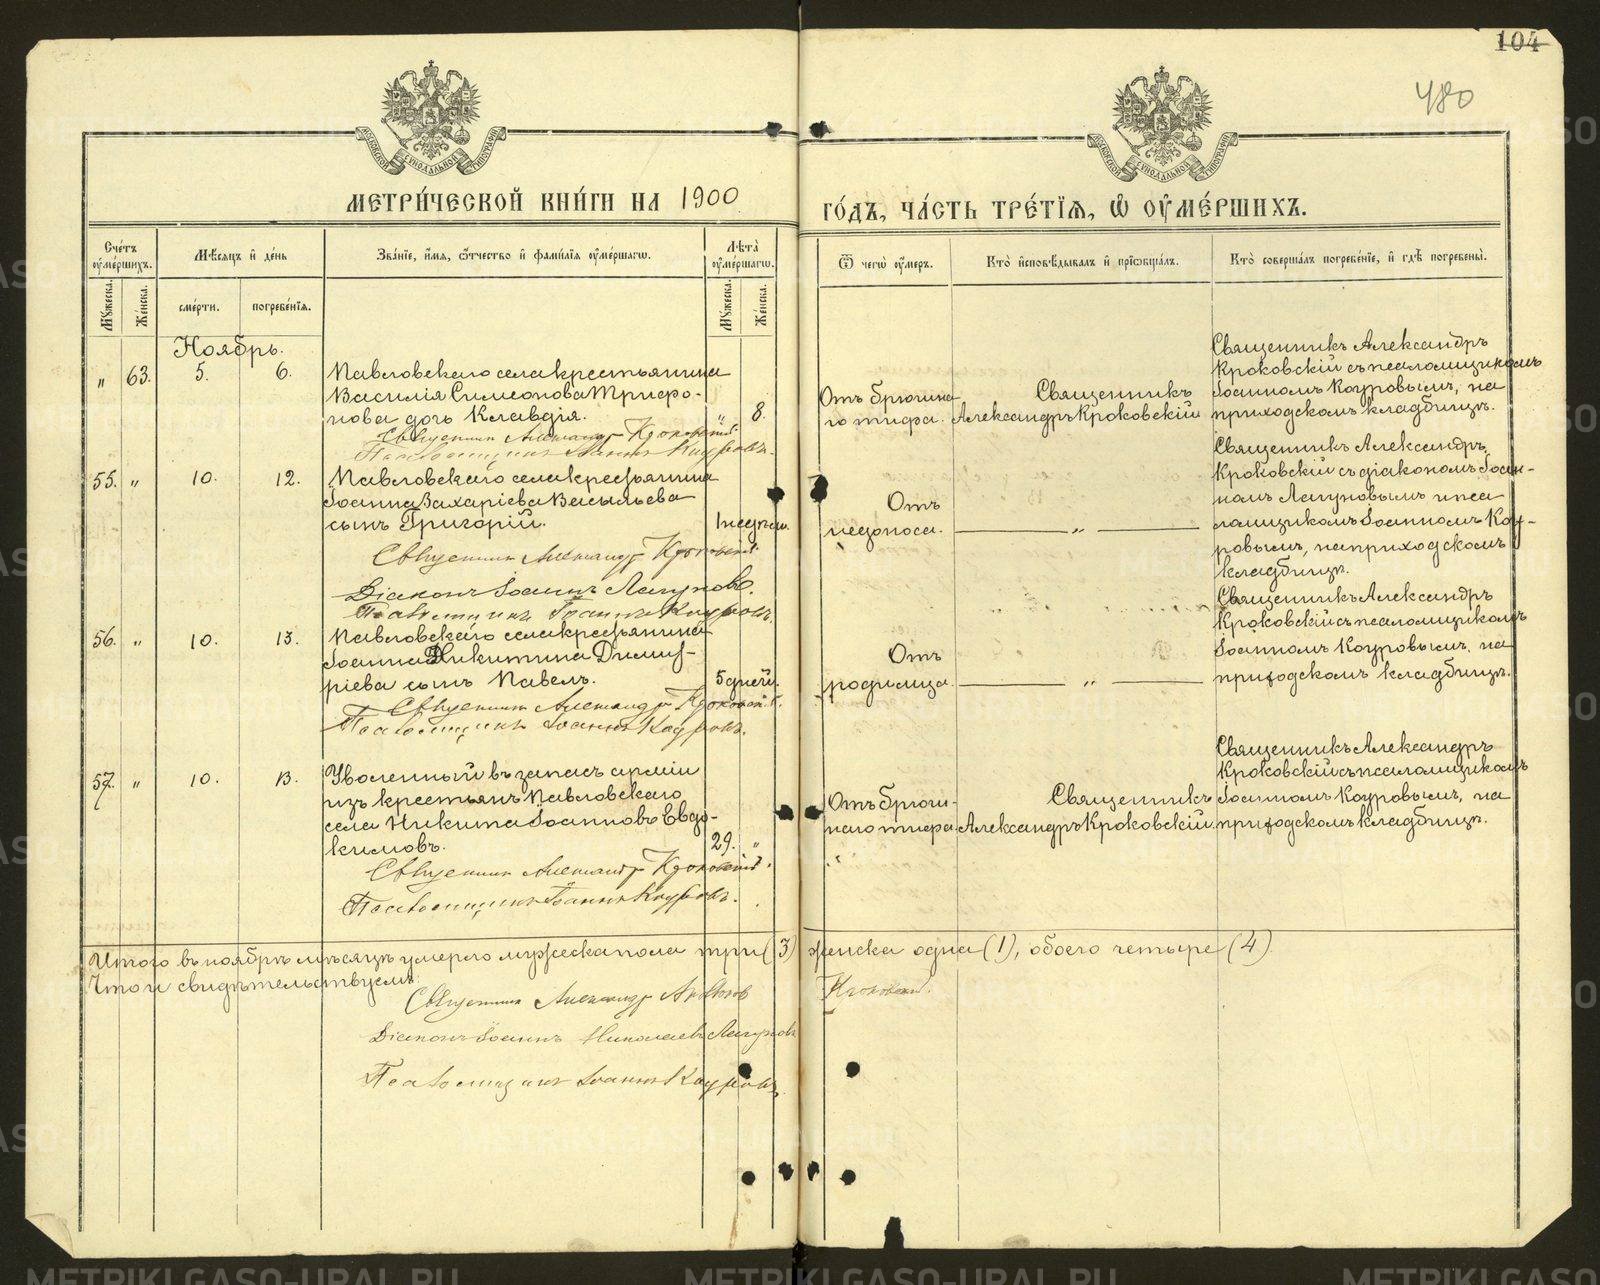 104
480
МОСКОВСКОЙ СѴНОДАЛЬНОЙ ТИПОГРАФІИ
МОСКОВСКОЙ СѴНОДАЛЬНОЙ ТИПОГРАФІИ
МЕТРИ́ЧЕСКОЙ КНИ́ГИ НА 1900
ГО́ДЪ, ЧА́СТЬ ТРЕ́ТІЯ, Ѡ ОУМЕ́РШИХЪ.
Сче́тъ оуме́ршихъ.
Мꙋжеска.
Же́нска.
Мѣ́сяцъ и де́нь
сме́рти.
погребе́нія.
Зва́ніе, и́мя, ѻ́тчество и фами́лія оуме́ршагѡ.
Лѣ́та оуме́ршагѡ.
Мꙋжеска.
Же́нска.
Ѿ чегѡ̀ оу́меръ.
Кто̀ исповѣ́дывалъ и пріѡбща́лъ.
Кто̀ соверша́лъ погребе́ніе, и гдѣ̀ погребены̀.
Ноябрь.
" 63. 5. 6.
Павловскаго села крестьянина
Василія Симеонова Трифо-
нова дочь Клавдія.
" 8.
Священникъ Александръ Кроковскій.
Псаломщикъ Іоаннъ Кауровъ.
Отъ брюшна-
го тифа.
Священникъ
Александръ Кроковскій
Священникъ Александръ
Кроковскій съ псаломщикомъ
Іоанномъ Кауровымъ, на
приходскомъ кладбищѣ.
55. " 10. 12.
Павловскаго села крестьянина
Іоанна Захаріева Васильева
сынъ Григорій.
1 недѣли.
Священникъ Александръ Кроковскій.
Діаконъ Іоаннъ Лагуновъ.
Псаломщикъ Іоаннъ Кауровъ.
Отъ
недоноса.
"
Священникъ Александръ
Кроковскій съ діакономъ Іоан-
номъ Лагуновымъ и пса
ломщикомъ Іоанномъ Кау-
ровымъ, на приходскомъ
кладбищѣ.
56. " 10. 13.
Павловскаго села крестьянина
Іоанна Никитина Димит-
ріева сынъ Павелъ.
5 дней.
Священникъ Александръ Кроковскій.
Псаломщикъ Іоаннъ Кауровъ.
Отъ
родимца.
"
Священникъ Александръ
Кроковскій съ псаломщикомъ
Іоанномъ Кауровымъ, на
приходскомъ кладбищѣ.
57. " 10. 13.
Уволенный въ запасъ арміи
изъ крестьянъ Павловскаго
села Никита Іоанновъ Евдо-
кимовъ.
29. "
Священникъ Александръ Кроковскій.
Псаломщикъ Іоаннъ Кауровъ.
Отъ брюш-
наго тифа.
Священникъ
Александръ Кроковскій.
Священникъ Александръ
Кроковскій съ псаломщикомъ
Іоанномъ Кауровымъ, на
приходскомъ кладбищѣ.
Итого въ ноябрѣ мѣсяцѣ умерло мужеска пола три (3) женска одна (1), обоего четыре (4)
Что и свидѣтельствуемъ:
Священникъ Александръ Кроковскій.
Діаконъ Іоаннъ Николаевъ Лагуновъ
Псаломщикъ Іоаннъ Кауровъ.
METRIKI.GASO-URAL.RU